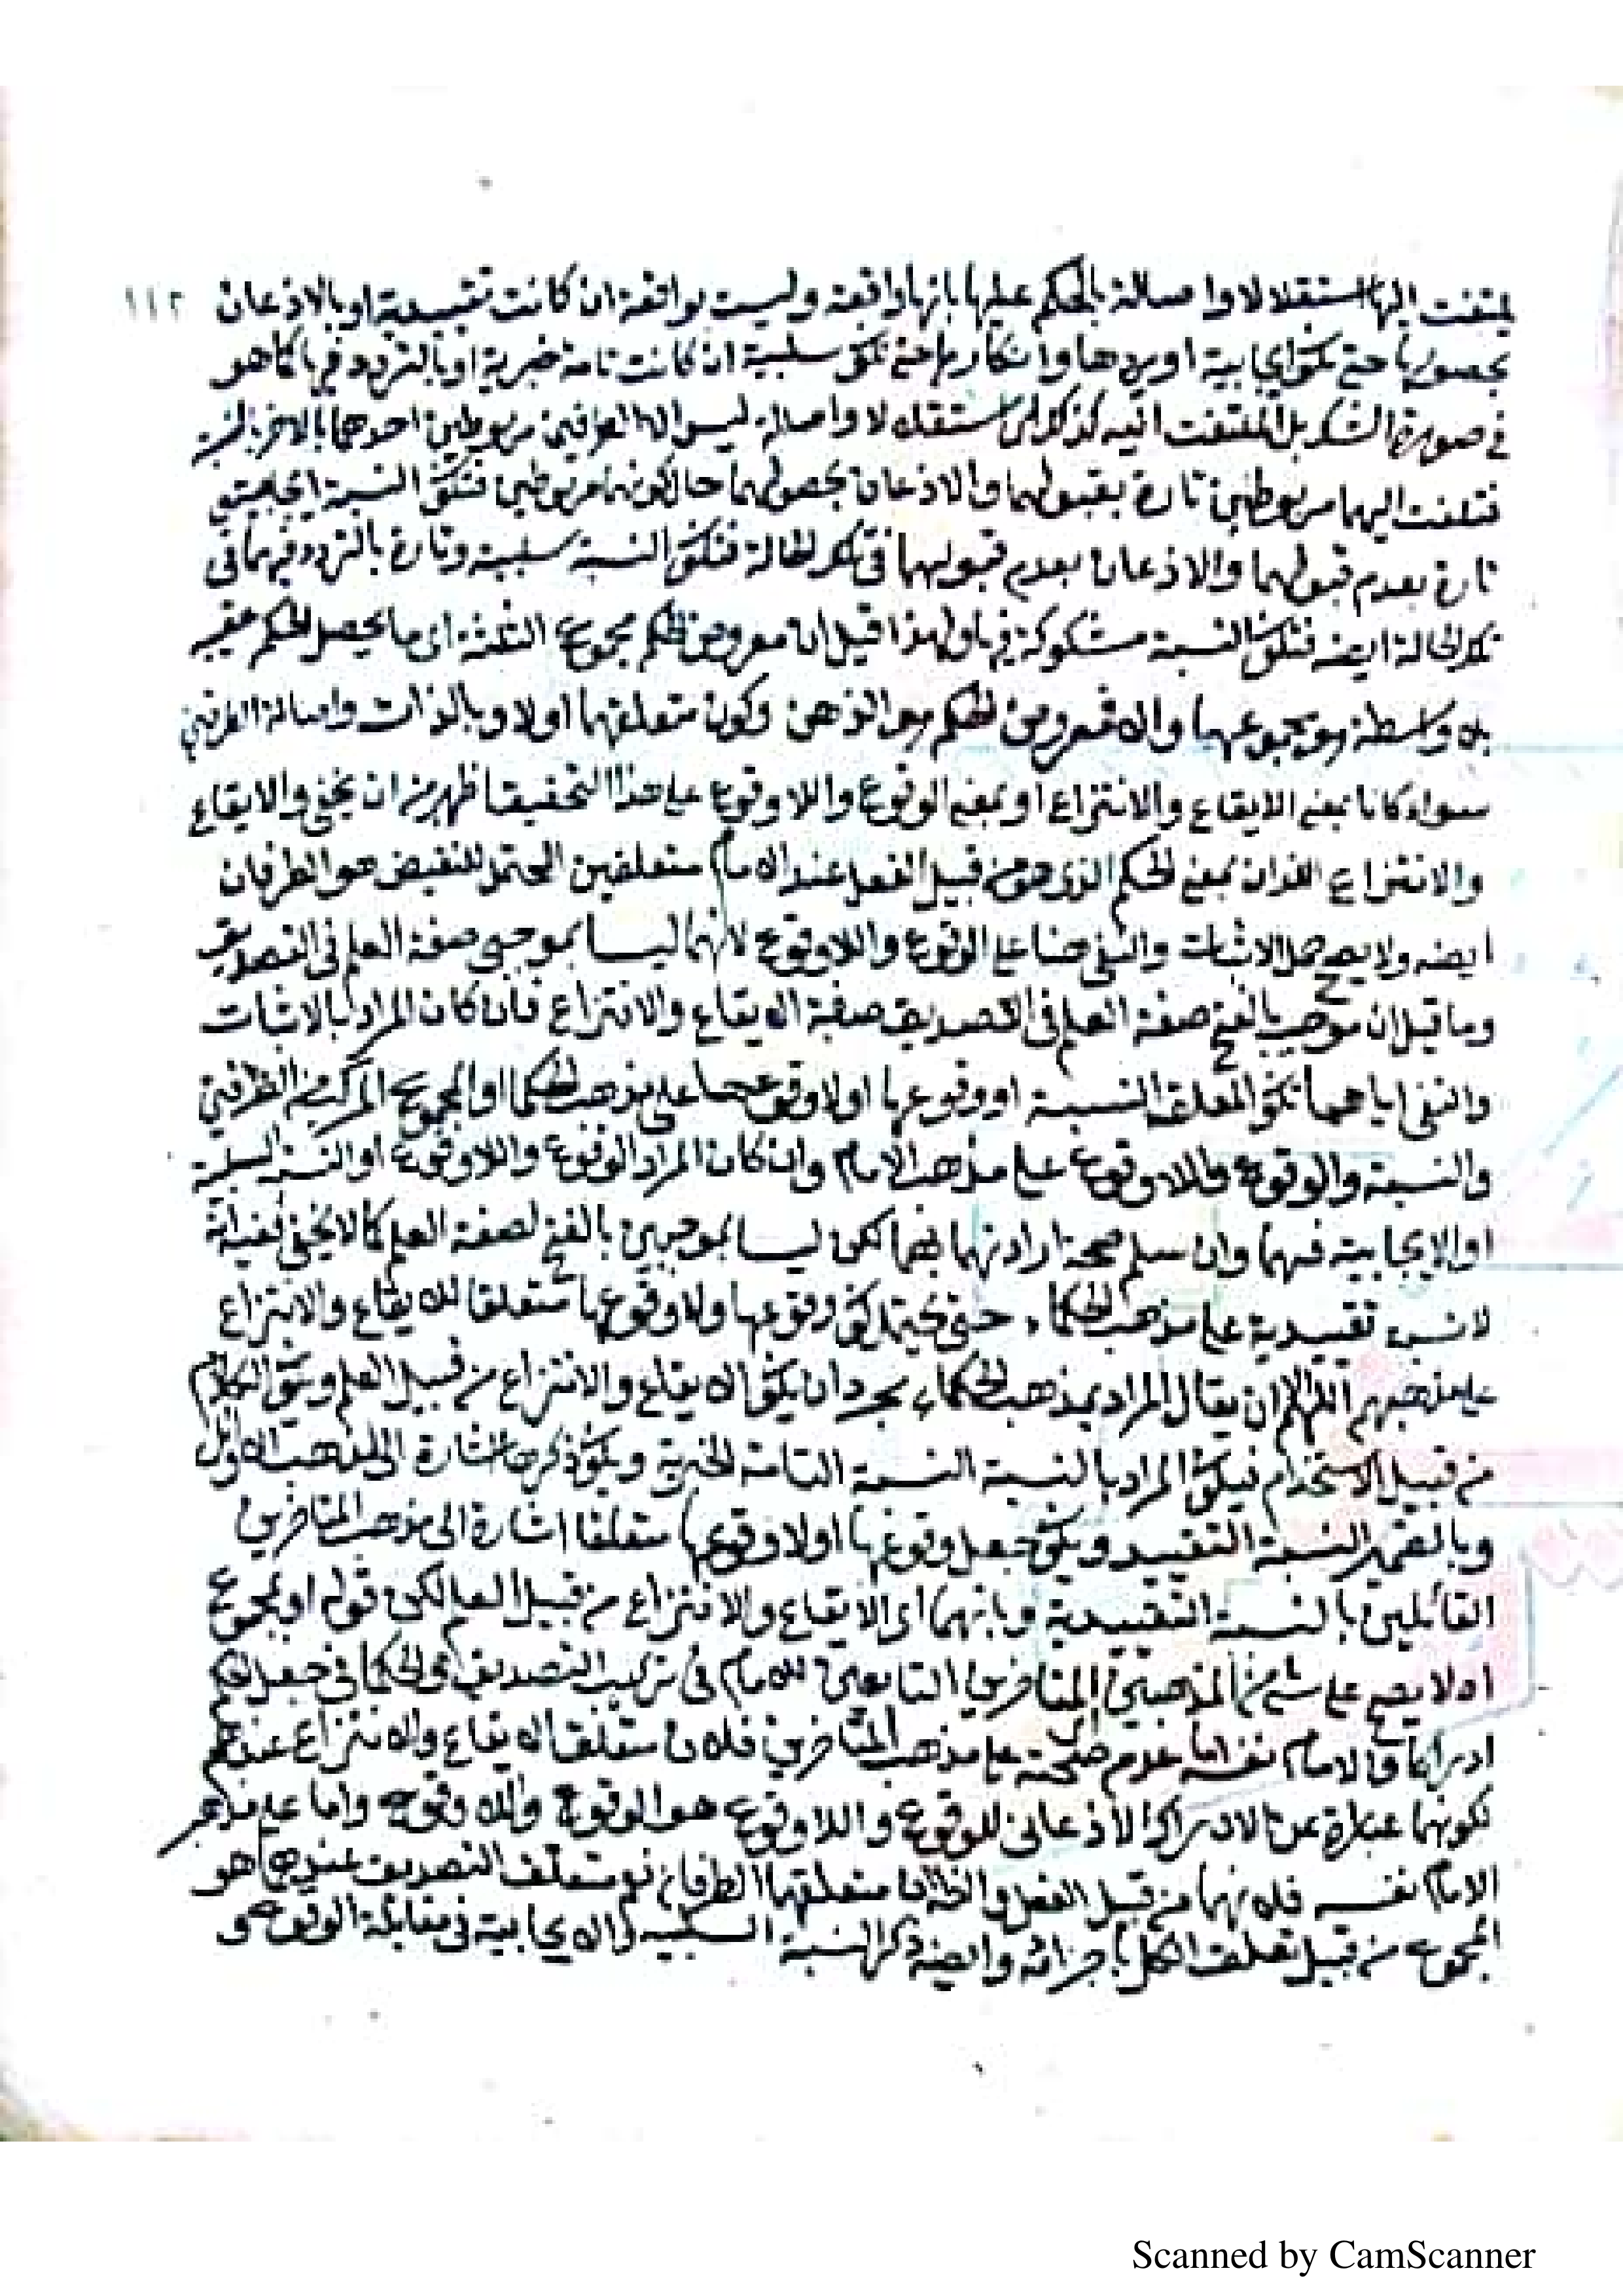 يلتفت اليها استقلالا واصالة بالحكم عليها بانها واقعة وليست بواقعة ان كانت تقييدية او بالاذعان ١١٢
بحصولها حتى تكون ايجابية او بردها وانكارها حتى تكون سلبية ان كانت تامة خبرية او بالتردد فيها كما هو
في صورة الشك بل الملتفت اليه كذلك استقلالا واصالة ليس الا الطرفين مربوطين احدهما بالاخر بالنسبة
فتلتفت اليهما مربوطين تارة بقبولهما والاذعان بحصولهما حال كونهما مربوطين فتكون النسبة ايجابية و
تارة بعدم قبولهما والاذعان بعدم قبولهما في تلك الحالة فتكون النسبة سلبية وتارة بالتردد فيهما في
تلك الحالة ايضه فتكون النسبة مشكوكة فيها ولهذا قيل ان معروض الحكم مجموع الثلثة اى ما يحصل الحكم عقيبه
بلا واسطة هو مجموعها والا فمعروض الحكم هو الذهن وكون متعلقهما اولا وبالذات واصالة الطرفين
سواء كانا بمعنى الايقاع والانتزاع او بمعنى الوقوع واللاوقوع على هذا التحقيق اظهر من ان يخفى والايقاع
والانتزاع اللذان بمعنى الحكم الذى هو من قبيل الفعل عند الامام متعلقين المحتمل للنقيض هو الطرفان
ايضه ولا يصح حمل الاثبات والنفى هنا على الوقوع واللاوقوع لانهما ليسا بموجبى صفة العلم في التصديق
وما قيل ان موجب بالفتح صفة العلم في التصديق صفة الايقاع والانتزاع فان كان المراد بالاثبات
والنفى اياهما تكون المتعلق النسبة او وقوعها اولا وقوعها على مذهب الحكما او المجموع المركب من الطرفين
والنسبة والوقوع واللاوقوع على مذهب الامام وان كان المراد الوقوع واللاوقوع او النسبة السلبية
او الايجابية فهما وان سلم صحة ارادتهما بهما لكن ليسا بموجبين بالفتح لصفة العلم كما لا يخفى فيه انه
لا نسبة تقييدية على مذهب الحكماء حتى يحتمل كون وقوعها ولا وقوعها متعلقا للايقاع والانتزاع
على مذهبهم اللهم الا ان يقال المراد بمذهب الحكماء مجرد ان يكون الايقاع والانتزاع من قبيل العلم ويكون الكلام
من قبيل الاستخدام فيكون المراد بالنسبة النسبة التامة الخبرية ويكون ذكرها اشارة الى المذهب الاوائل
وبالضمير النسبة التقييد ويكون جعل وقوعها اولا وقوعها متعلقا اشارة الى مذهب المتأخرين
القائلين بالنسبة التقييدية وبانهما اى الايقاع والانتزاع من قبيل العلم لكن قوله او المجموع
اه لا يصح على شئ من المذهبين المتأخرين التابعين للامام في تركيب التصديق والحكما في جعل الحكم
ادراكا والامام نفسه اما عدم صحته على مذهب المتأخرين فلان متعلق الايقاع والانتزاع عندهم
لكونهما عبارة عن الادراك الاذعانى للوقوع واللاوقوع هو الوقوع واللاوقوع واما على مذهب
الامام نفسه فلانهما من قبيل الفعل والحال ان متعلقهما الطرفان نعم متعلق التصديق عندهما هو
المجموع من قبيل تعلق الكل باجزائه وايضه ذكر النسبة السلبية والايجابية في مقابلة الوقوع و